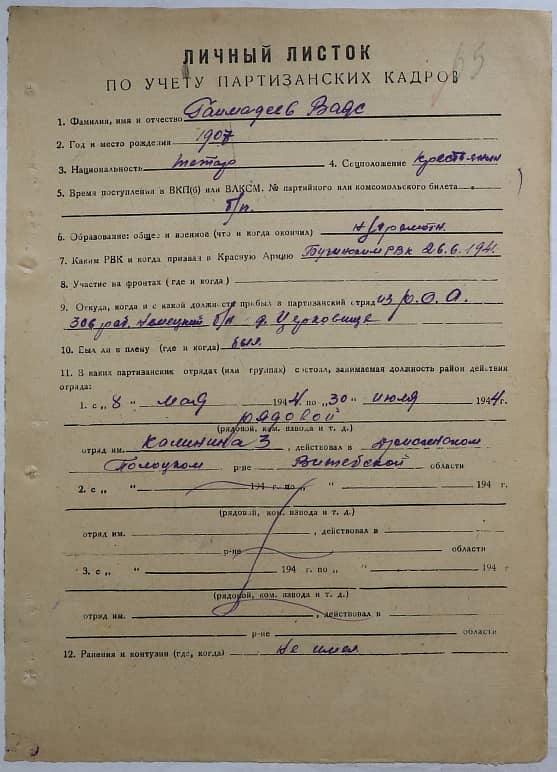 65
ЛИЧНЫЙ ЛИСТОК
ПО УЧЕТУ ПАРТИЗАНСКИХ КАДРОВ
1. Фамилия, имя и отчество
2. Год и место рождения 1907
3. Национальность татар 4. Соцположение крестьянин
5. Время поступления в ВКП(б) или ВЛКСМ. № партийного или комсомольского билета
б/п.
6. Образование: общее и военное (что и когда окончил) н/грамотн.
7. Каким РВК и когда призван в Красную Армию РВК 26.6.1941.
8. Участие на фронтах (где и когда)
9. Откуда, когда и с какой должности прибыл в партизанский отряд из Р.О.А.
306 б/н д. Церковище
10. Был ли в плену (где и когда) был
11. В каких партизанских отрядах (или группах) состоял, занимаемая должность район действия
отряда:
1. с „ 8 " мая 1944 г. по „ 30 " июля 1944 г.
рядовой
(рядовой, ком. взвода и т. д.)
отряд им. Калинина 3, действовал в
Полоцком р-не Витебской области
2. с „ " 194 г. по „ " 194 г.
(рядовой, ком. взвода и т. д.)
отряд им. , действовал в
р-не области
3. с „ " 194 г. по „ " 194 г
(рядовой, ком. взвода и т. д.)
отряд им. , действовал в
р-не области
12. Ранения и контузии (где, когда) не имел